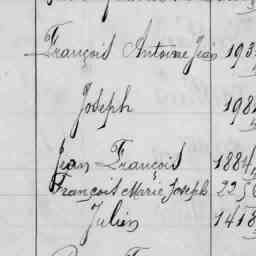 François Antoine Jean 193
Joseph 198
Jean François 1884
François Marie Joseph 225
Julien 1418